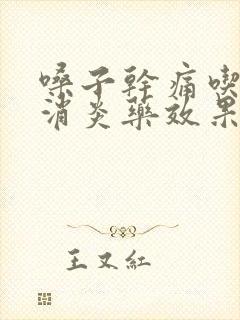 嗓子幹痛喫
消炎藥效果
王又紅